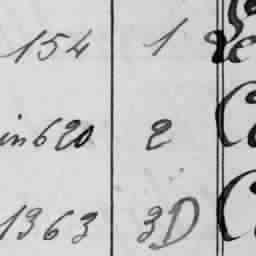 154 1
in620 2
1363 3D